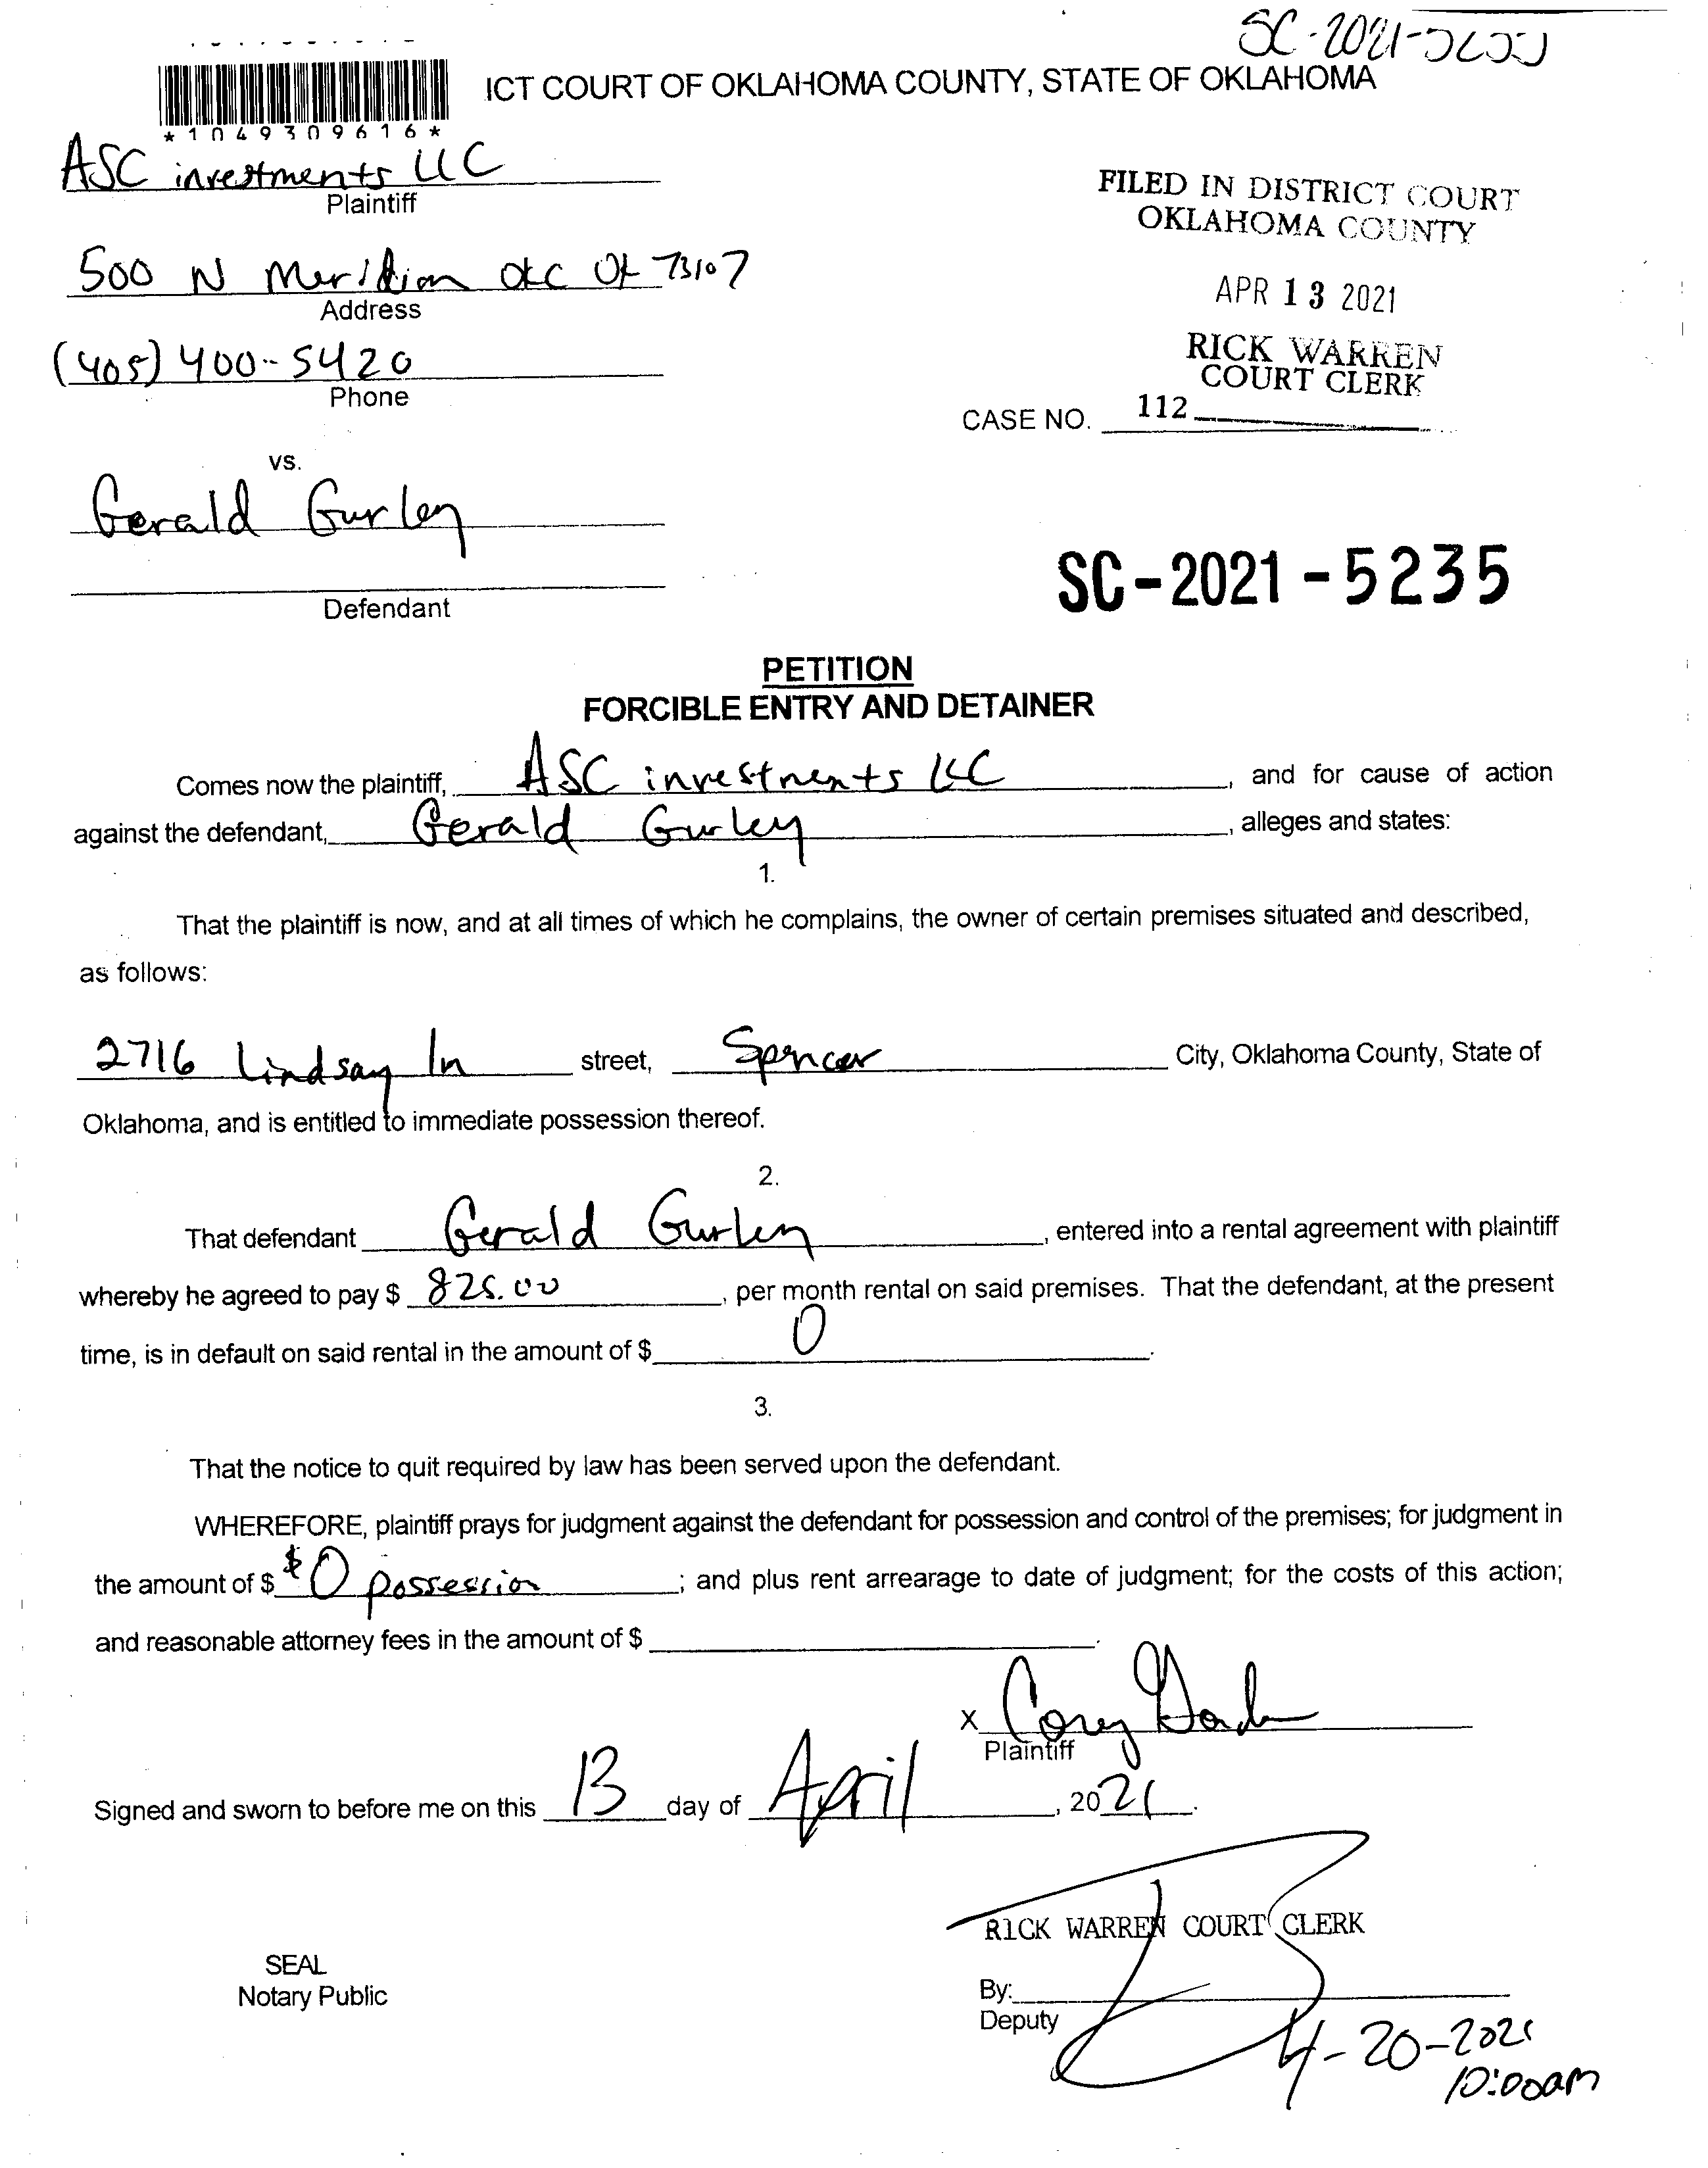 SC-2021-
ICT COURT OF OKLAHOMA COUNTY, STATE OF OKLAHOMA
*1049309616*
ASC investments LLC
Plaintiff
FILED IN DISTRICT COURT
OKLAHOMA COUNTY
500 N Meridian OKC OK 73107
Address
APR 13 2021
(405) 400-5420
Phone
RICK WARREN
COURT CLERK
CASE NO. 112
vs.
Gerald Gurley
Defendant
SC-2021-5235
PETITION
FORCIBLE ENTRY AND DETAINER
Comes now the plaintiff, ASC investments LLC, and for cause of action
against the defendant, Gerald Gurley, alleges and states:
1.
That the plaintiff is now, and at all times of which he complains, the owner of certain premises situated and described,
as follows:
2716 Lindsay ln street, Spencer City, Oklahoma County, State of
Oklahoma, and is entitled to immediate possession thereof.
2.
That defendant Gerald Gurley, entered into a rental agreement with plaintiff
whereby he agreed to pay $ 825.00, per month rental on said premises. That the defendant, at the present
time, is in default on said rental in the amount of $ 0.
3.
That the notice to quit required by law has been served upon the defendant.
WHEREFORE, plaintiff prays for judgment against the defendant for possession and control of the premises; for judgment in
the amount of $ $0 possession; and plus rent arrearage to date of judgment; for the costs of this action;
and reasonable attorney fees in the amount of $ .
X Corey
Plaintiff
Signed and sworn to before me on this 13 day of April, 2021.
RICK WARREN COURT CLERK
SEAL
Notary Public
By:
Deputy
4-20-2021
10:00am